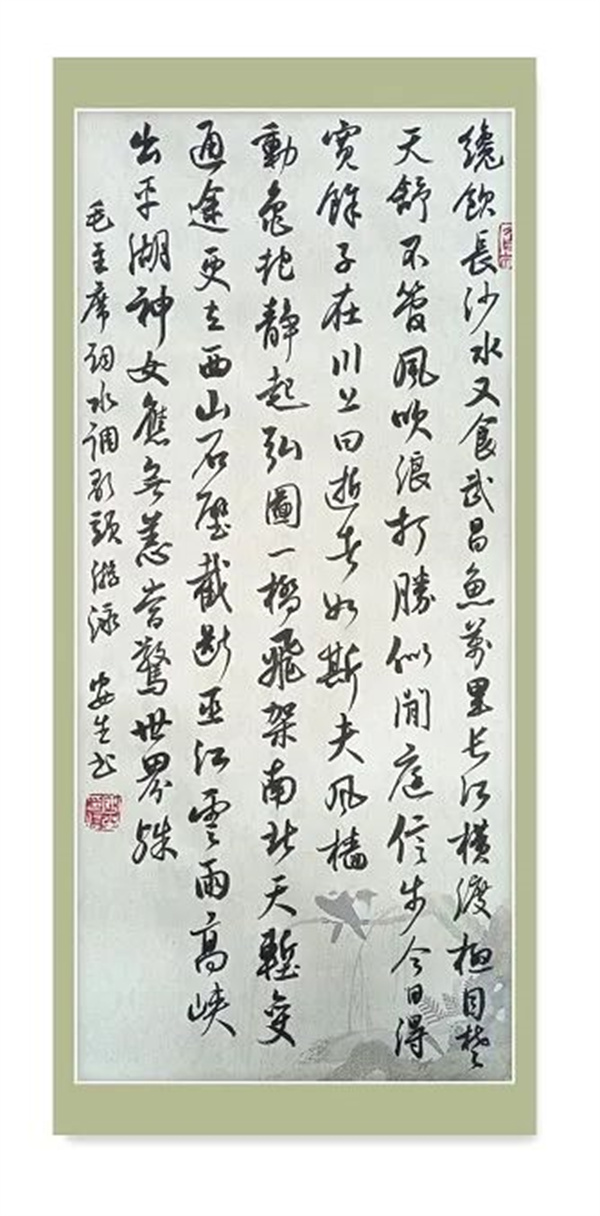 纔飲長沙水又食武昌魚萬里长江橫渡極目楚
天舒不管風吹浪打勝似閒庭信步今日得
寬餘子在川上曰逝者如斯夫风檣
動龜蛇靜起弘圖一橋飛架南北天塹变
通途更立西山石壁截断巫江雲雨高峡
出平湖神女應無恙當驚世界殊
毛主席词水调歌頭游泳 安生书